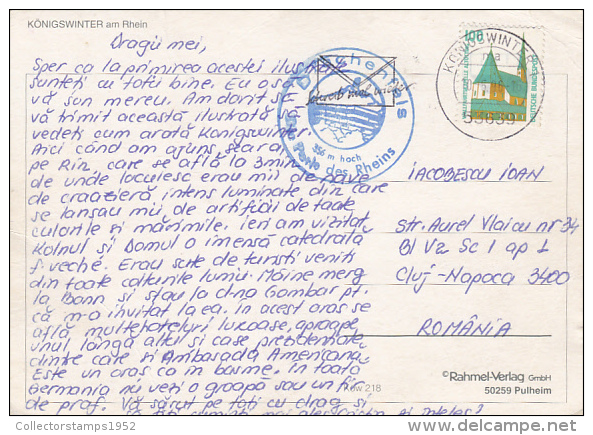 KÖNIGSWINTER am Rhein
Dragii mei,
Sper ca la primirea acestei
sunteți cu toții bine. Eu
vă sun mereu. Am dorit să
vă trimit această ilustrată să
vedeți cum arată Königswinter.
Aici când am ajuns, seara,
pe Rin, care se află la 3 min
de unde locuiesc erau mii de nave
de croazieră, intens luminate din care
se lansau mii de artificii de toate
culorile și mărimile. Ieri am vizitat
Kolnul și Domul o imensă catedrală
f. veche. Erau sute de turiști veniți
din toate colțurile lumii. Mâine merg
la Bonn și stau la d-na Gambar pt.
că m-a invitat la ea. În acest oraș se
află multe hoteluri luxoase, aproape
unul lângă altul și case prezidențiale
dintre care și Ambasada Americană
Este un oraș ca în basme. În toată
Germania nu veți o groapă sau un fir
de praf. Vă sărut pe toți cu drag și
Drachenfels
356 m hoch
Perle des Rheins
KÖNIGSWINTER
53639
100
DEUTSCHE BUNDESPOST
IACOBESCU IOAN
str. Aurel Vlaicu nr 34
Bl V2 Sc 1 ap 1
Cluj-Napoca 3400
ROMÂNIA
Köw 218
©Rahmel-Verlag GmbH
50259 Pulheim
Collectorstamps1952
delcampe.net